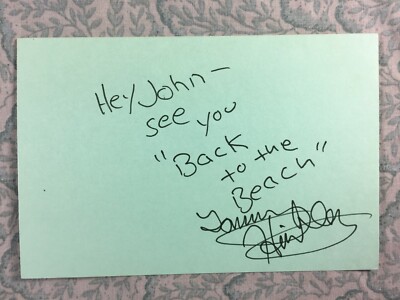 Hey John –
see you
"Back
to the
Beach"